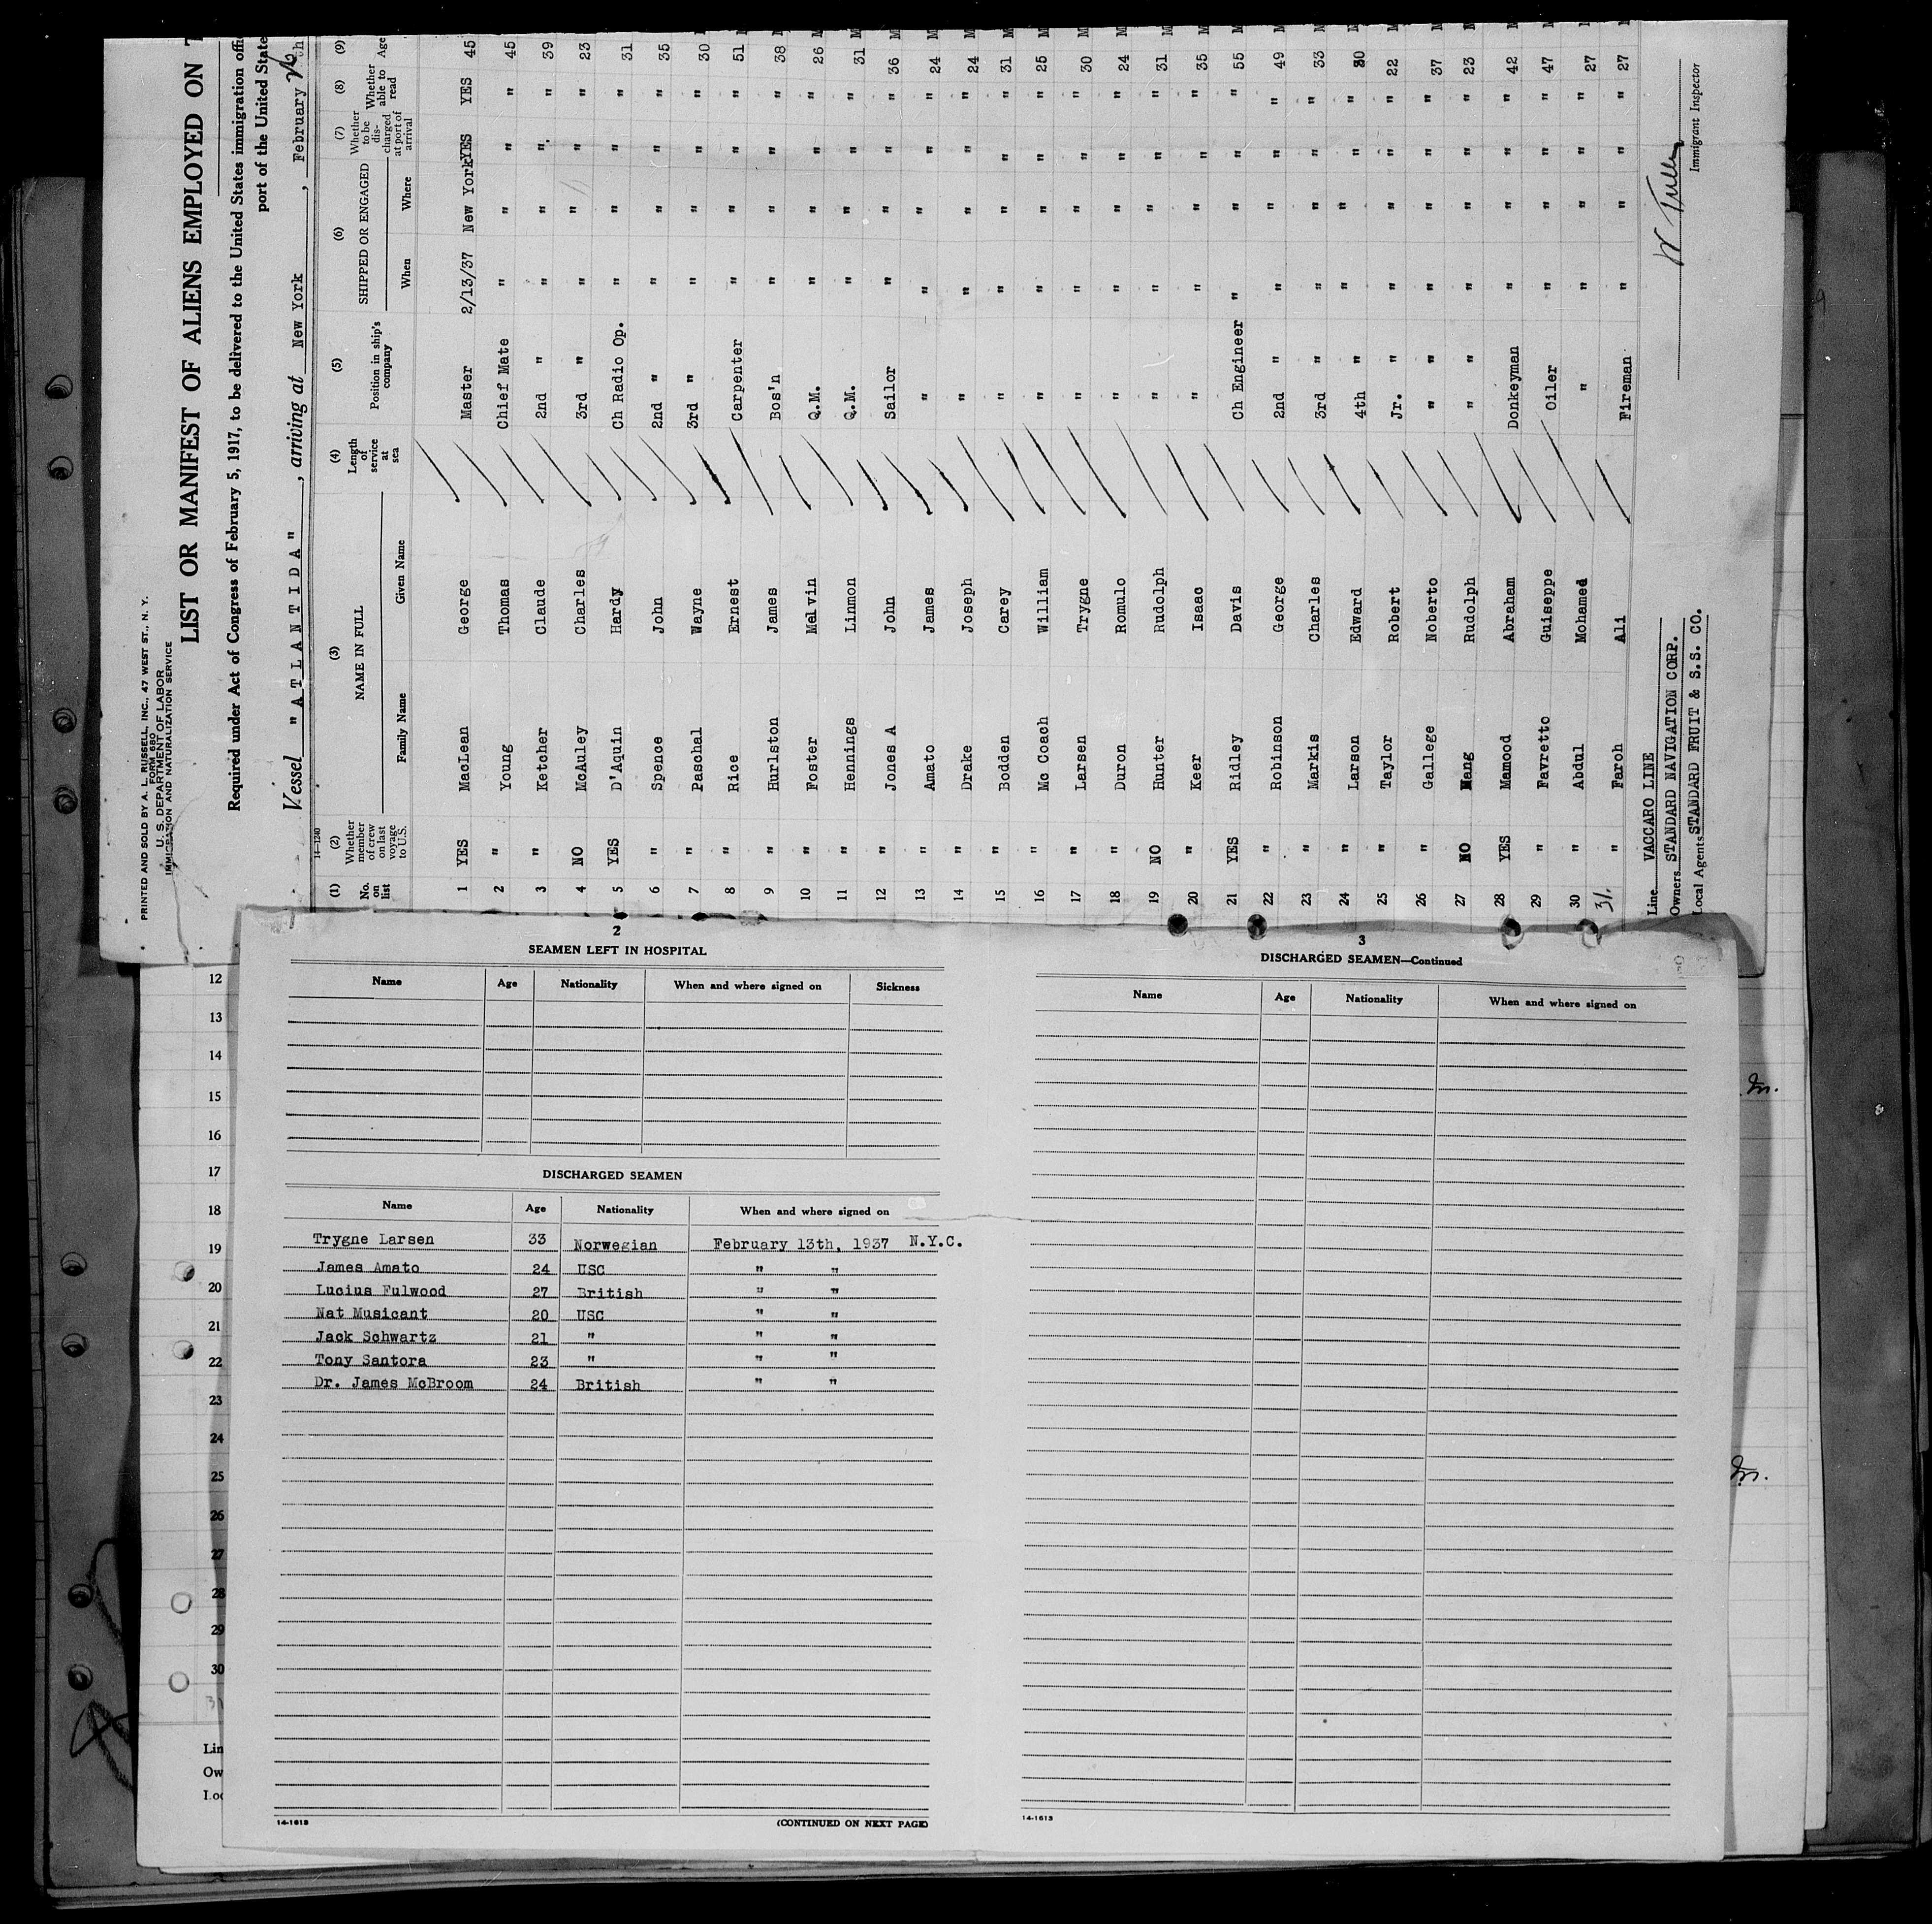 PRINTED AND SOLD BY A. L. RUSSELL, INC., 47 WEST ST., N. Y.
FORM 680
U. S. DEPARTMENT OF LABOR
IMMIGRATION AND NATURALIZATION SERVICE
LIST OR MANIFEST OF ALIENS EMPLOYED ON
Required under Act of Congress of February 5, 1917, to be delivered to the United States immigration
port of the United State
Vessel "ATLANTIDA", arriving at New York, February th
14-1240
(1) No. on list (2) Whether member of crew on last voyage to U.S. (3) NAME IN FULL Family Name Given Name (4) Length of service at sea (5) Position in ship's company (6) SHIPPED OR ENGAGED When Where (7) Whether to be discharged at port of arrival (8) Whether able to read (9) Age
1 YES MacLean George Master 2/13/37 New York YES YES 45
2 " Young Thomas Chief Mate " " " " 45 M
3 " Ketcher Claude 2nd " " " " " 39 M
4 NO McAuley Charles 3rd " " " " " 23 M
5 YES D'Aquin Hardy Ch Radio Op. " " " " 31 M
6 " Spence John 2nd " " " " " 35 M
7 " Paschal Wayne 3rd " " " " " 30 M
8 " Rice Ernest Carpenter " " " " 51 M
9 " Hurlston James Bos'n " " " " 38 M
10 " Foster Melvin Q.M. " " " " 26 M
11 " Hennings Linmon Q.M. " " " " 31 M
12 " Jones A John Sailor " " " " 36 M
13 " Amato James " " " " " 24 M
14 " Drake Joseph " " " " " 24 M
15 " Bodden Carey " " " " " 31 M
16 " Mc Coach William " " " " " 25 M
17 " Larsen Trygne " " " " " 30 M
18 " Duron Romulo " " " " " 24 M
19 NO Hunter Rudolph " " " " " 31 M
20 " Keer Isaac " " " " " 35 M
21 YES Ridley Davis Ch Engineer " " " " 55 M
22 " Robinson George 2nd " " " " " 49 M
23 " Markis Charles 3rd " " " " " 33 M
24 " Larson Edward 4th " " " " " 30 M
25 " Taylor Robert Jr. " " " " " 22 M
26 " Gallege Noberto " " " " " " 37 M
27 NO Mang Rudolph " " " " " " 23 M
28 YES Mamood Abraham Donkeyman " " " " 42 M
29 " Favretto Guiseppe Oiler " " " " 47 M
30 " Abdul Mohamed " " " " " 27 M
31. " Faroh Ali Fireman " " " " 27 M
Line VACCARO LINE
Owners STANDARD NAVIGATION CORP.
Local Agents STANDARD FRUIT & S.S. CO.
Immigrant Inspector
2
SEAMEN LEFT IN HOSPITAL
Name Age Nationality When and where signed on Sickness
DISCHARGED SEAMEN
Name Age Nationality When and where signed on
Trygne Larsen 33 Norwegian February 13th, 1937 N.Y.C.
James Amato 24 USC " "
Lucius Fulwood 27 British " "
Nat Musicant 20 USC " "
Jack Schwartz 21 " " "
Tony Santora 23 " " "
Dr. James McBroom 24 British " "
14-1613
(CONTINUED ON NEXT PAGE)
3
DISCHARGED SEAMEN—Continued
Name Age Nationality When and where signed on
14-1613
12
13
14
15
16
17
18
19
20
21
22
23
24
25
26
27
28
29
30
31
Lin
Ow
Loc